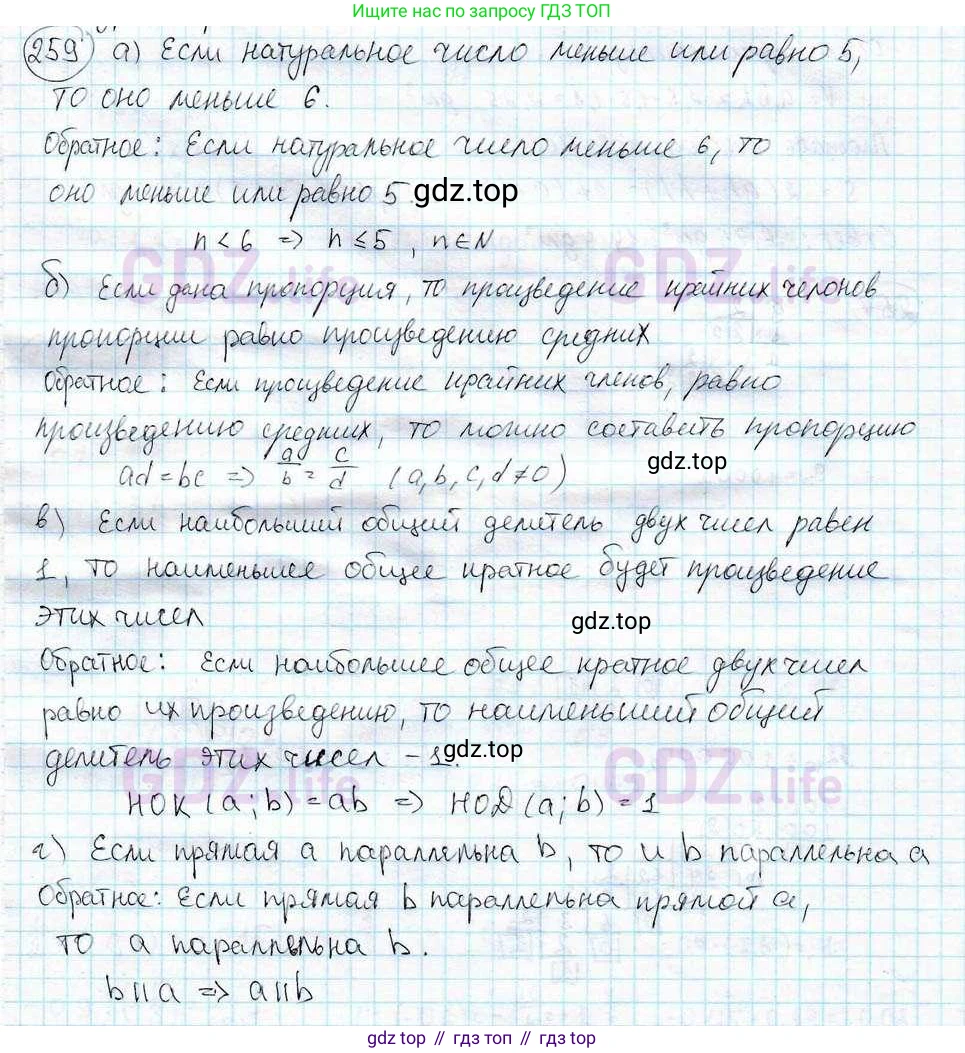 Ищите нас по запросу ГДЗ ТОП
259 а) Если натуральное число меньше или равно 5,
то оно меньше 6.
Обратное: Если натуральное число меньше 6, то
оно меньше или равно 5
gdz.top
n < 6 => n ≤ 5, n ∈ N
GDZ.life GDZ.life
б) Если дана пропорция, то произведение крайних челонов
пропорции равно произведению средних
Обратное: Если произведение крайних членов, равно
произведению средних, то можно составить пропорцию
ad = bc => a/b = c/d (a, b, c, d ≠ 0)
gdz.top
в) Если наибольший общий делитель двух чисел равен
1, то наименьшее общее кратное будет произведение
этих чисел
gdz.top
Обратное: Если наибольшее общее кратное двух чисел
равно их произведению, то наименьший общий
делитель этих чисел – 1.
gdz.top
GDZ.life GDZ.life
НОК (a; b) = ab => НОД (a; b) = 1
г) Если прямая a параллельна b, то и b параллельна a
Обратное: Если прямая b параллельна прямой a,
то a параллельна b.
b || a => a || b
gdz.top // гдз топ // gdz.top